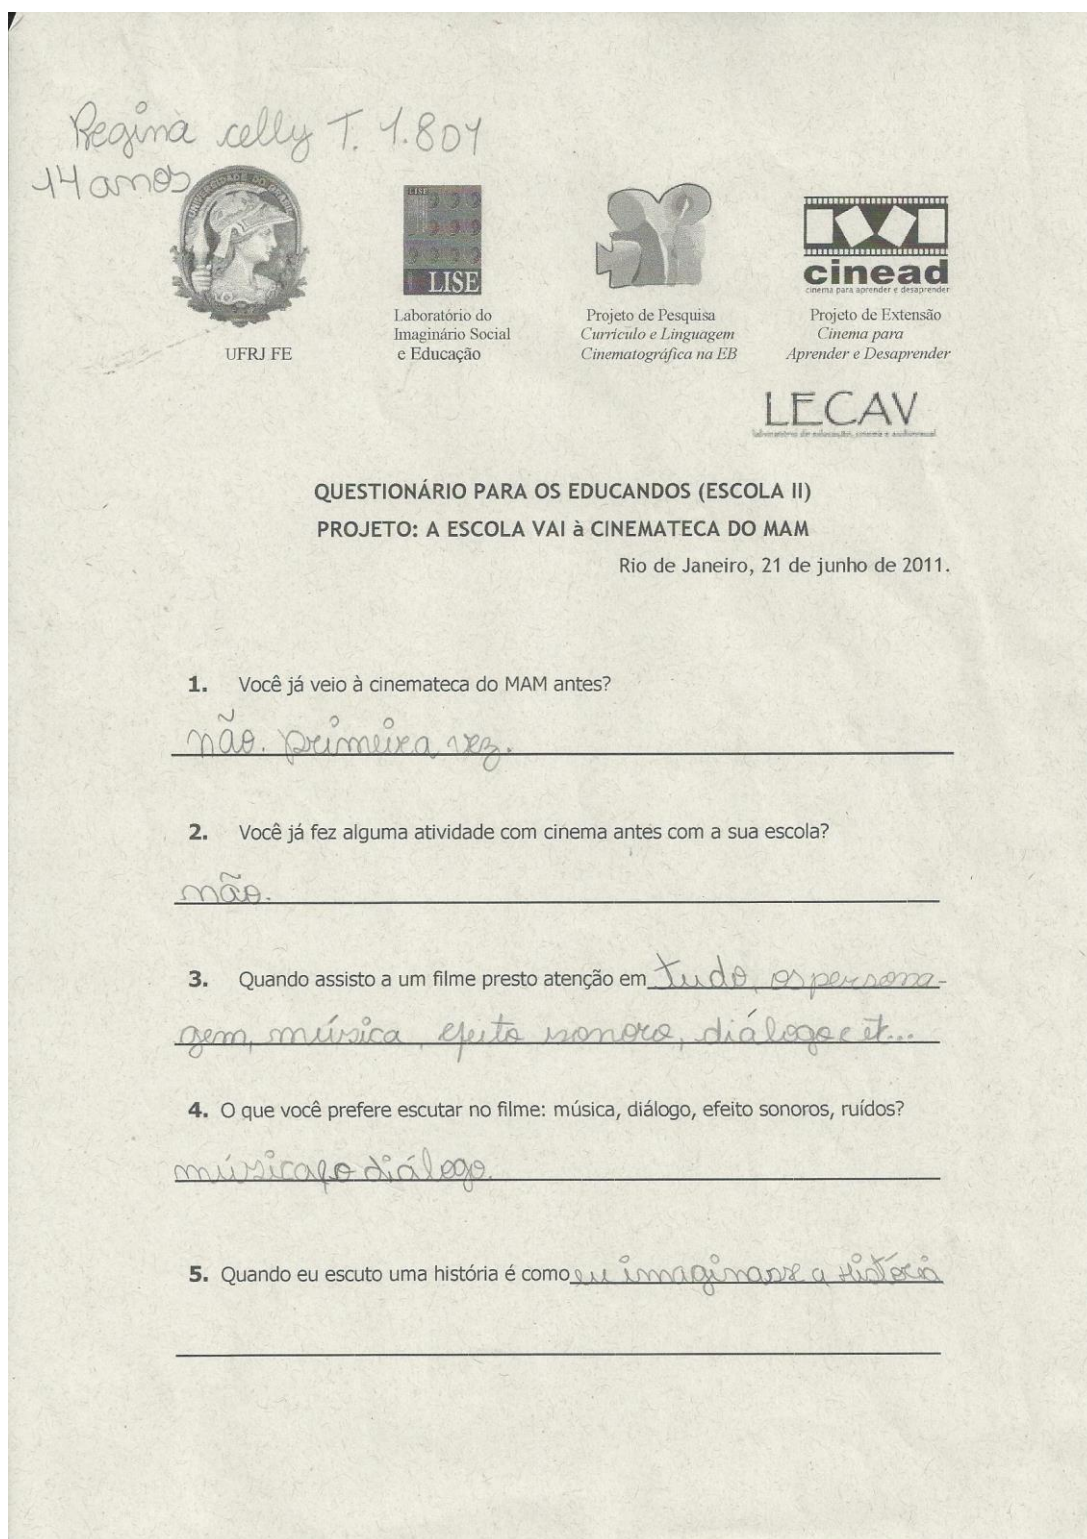 Regina celly T. 1.801
14 anos
UNIVERSIDADE DO BRASIL
LISE
LISE
cinead
cinema para aprender e desaprender
UFRJ FE
Laboratório do
Imaginário Social
e Educação
Projeto de Pesquisa
Currículo e Linguagem
Cinematográfica na EB
Projeto de Extensão
Cinema para
Aprender e Desaprender
LECAV
laboratório de educação, cinema e audiovisual
QUESTIONÁRIO PARA OS EDUCANDOS (ESCOLA II)
PROJETO: A ESCOLA VAI à CINEMATECA DO MAM
Rio de Janeiro, 21 de junho de 2011.
1. Você já veio à cinemateca do MAM antes?
não. primeira vez.
2. Você já fez alguma atividade com cinema antes com a sua escola?
não.
3. Quando assisto a um filme presto atenção em tudo, os persona-
gem, música, efeito sonoro, diálogo e et...
4. O que você prefere escutar no filme: música, diálogo, efeito sonoros, ruídos?
música diálogo.
5. Quando eu escuto uma história é como eu imaginasse a história